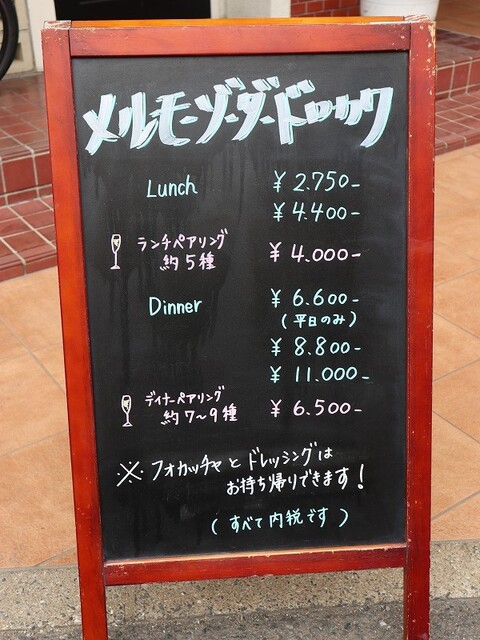 メルモ・ゾ・ダ・ドロカワ
Lunch ¥2.750-
¥4.400-
ランチペアリング
約5種 ¥4.000-
Dinner ¥6.600-
(平日のみ)
¥8.800-
¥11.000-
ディナーペアリング
約7〜9種 ¥6.500-
※フォカッチャとドレッシングは
お持ち帰りできます!
(すべて内税です)